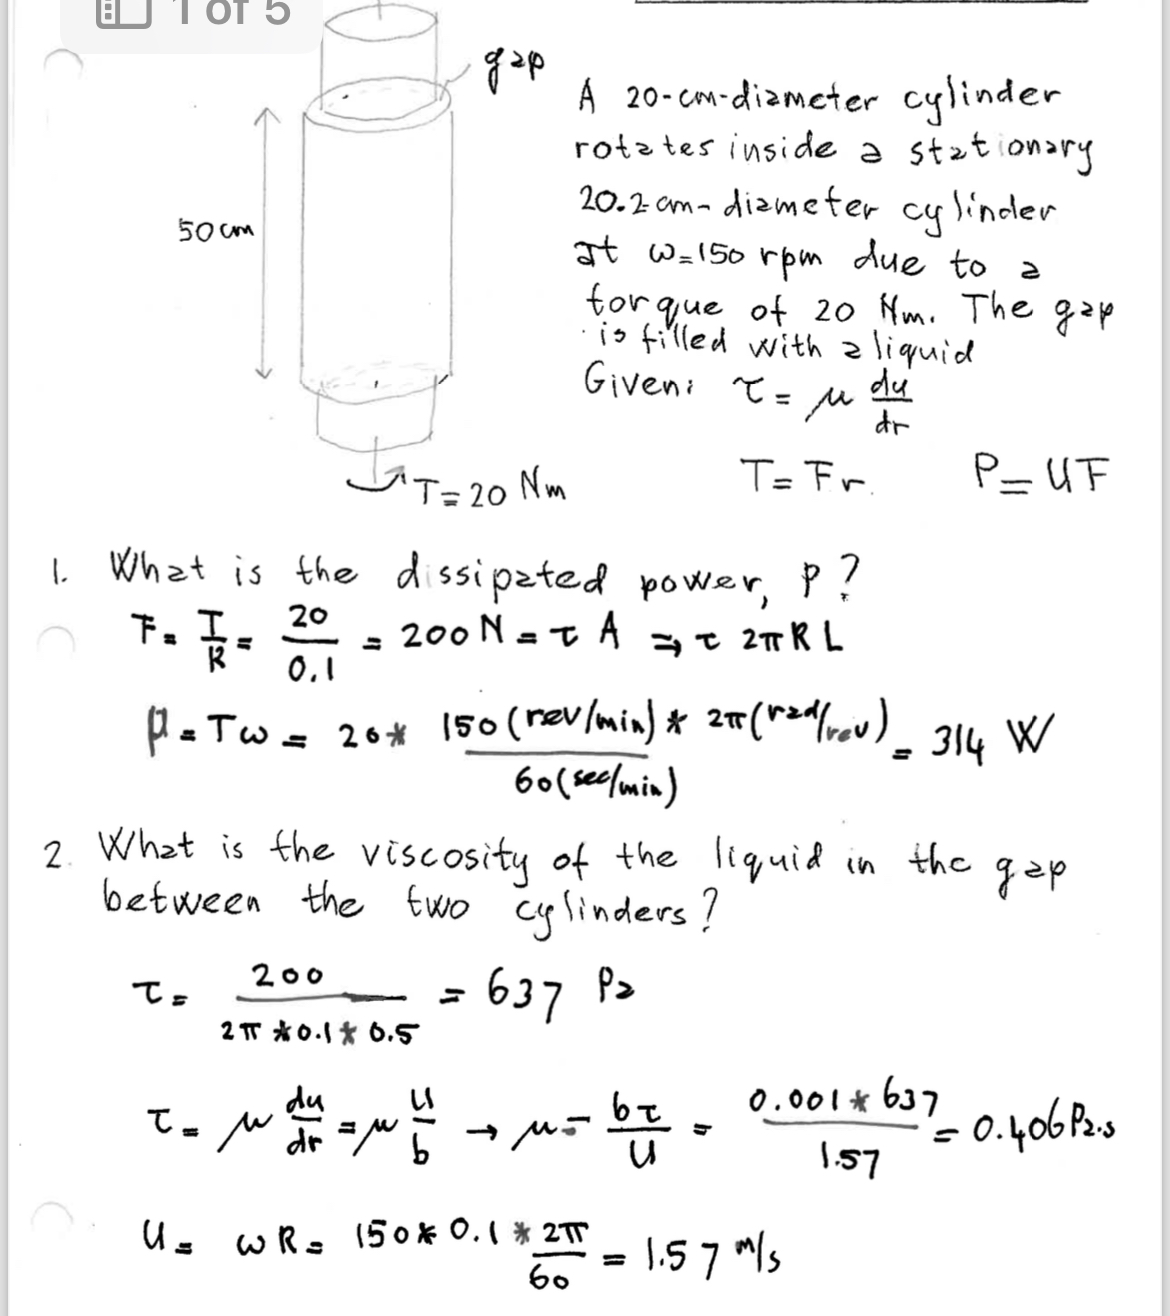 1 of 5
gap
A 20-cm-diameter cylinder
rotates inside a stationary
20.2 cm-diameter cylinder
50 cm
at ω=150 rpm due to a
torque of 20 Nm. The gap
is filled with a liquid
Given: τ = μ du/dr
T=20 Nm
T= Fr. P=UF
1. What is the dissipated power, P?
F = T/R = 20/0.1 = 200 N = τ A ⇒ τ 2π R L
P = Tω = 20* 150 (rev/min) * 2π (rad/rev) / 60 (sec/min) = 314 W
2. What is the viscosity of the liquid in the gap
between the two cylinders?
τ = 200 / 2π *0.1* 0.5 = 637 Pa
τ = μ du/dr = μ U/b → μ = bτ/U = 0.001* 637 / 1.57 = 0.406 Pa.s
U = ωR = 150* 0.1 * 2π/60 = 1.57 m/s